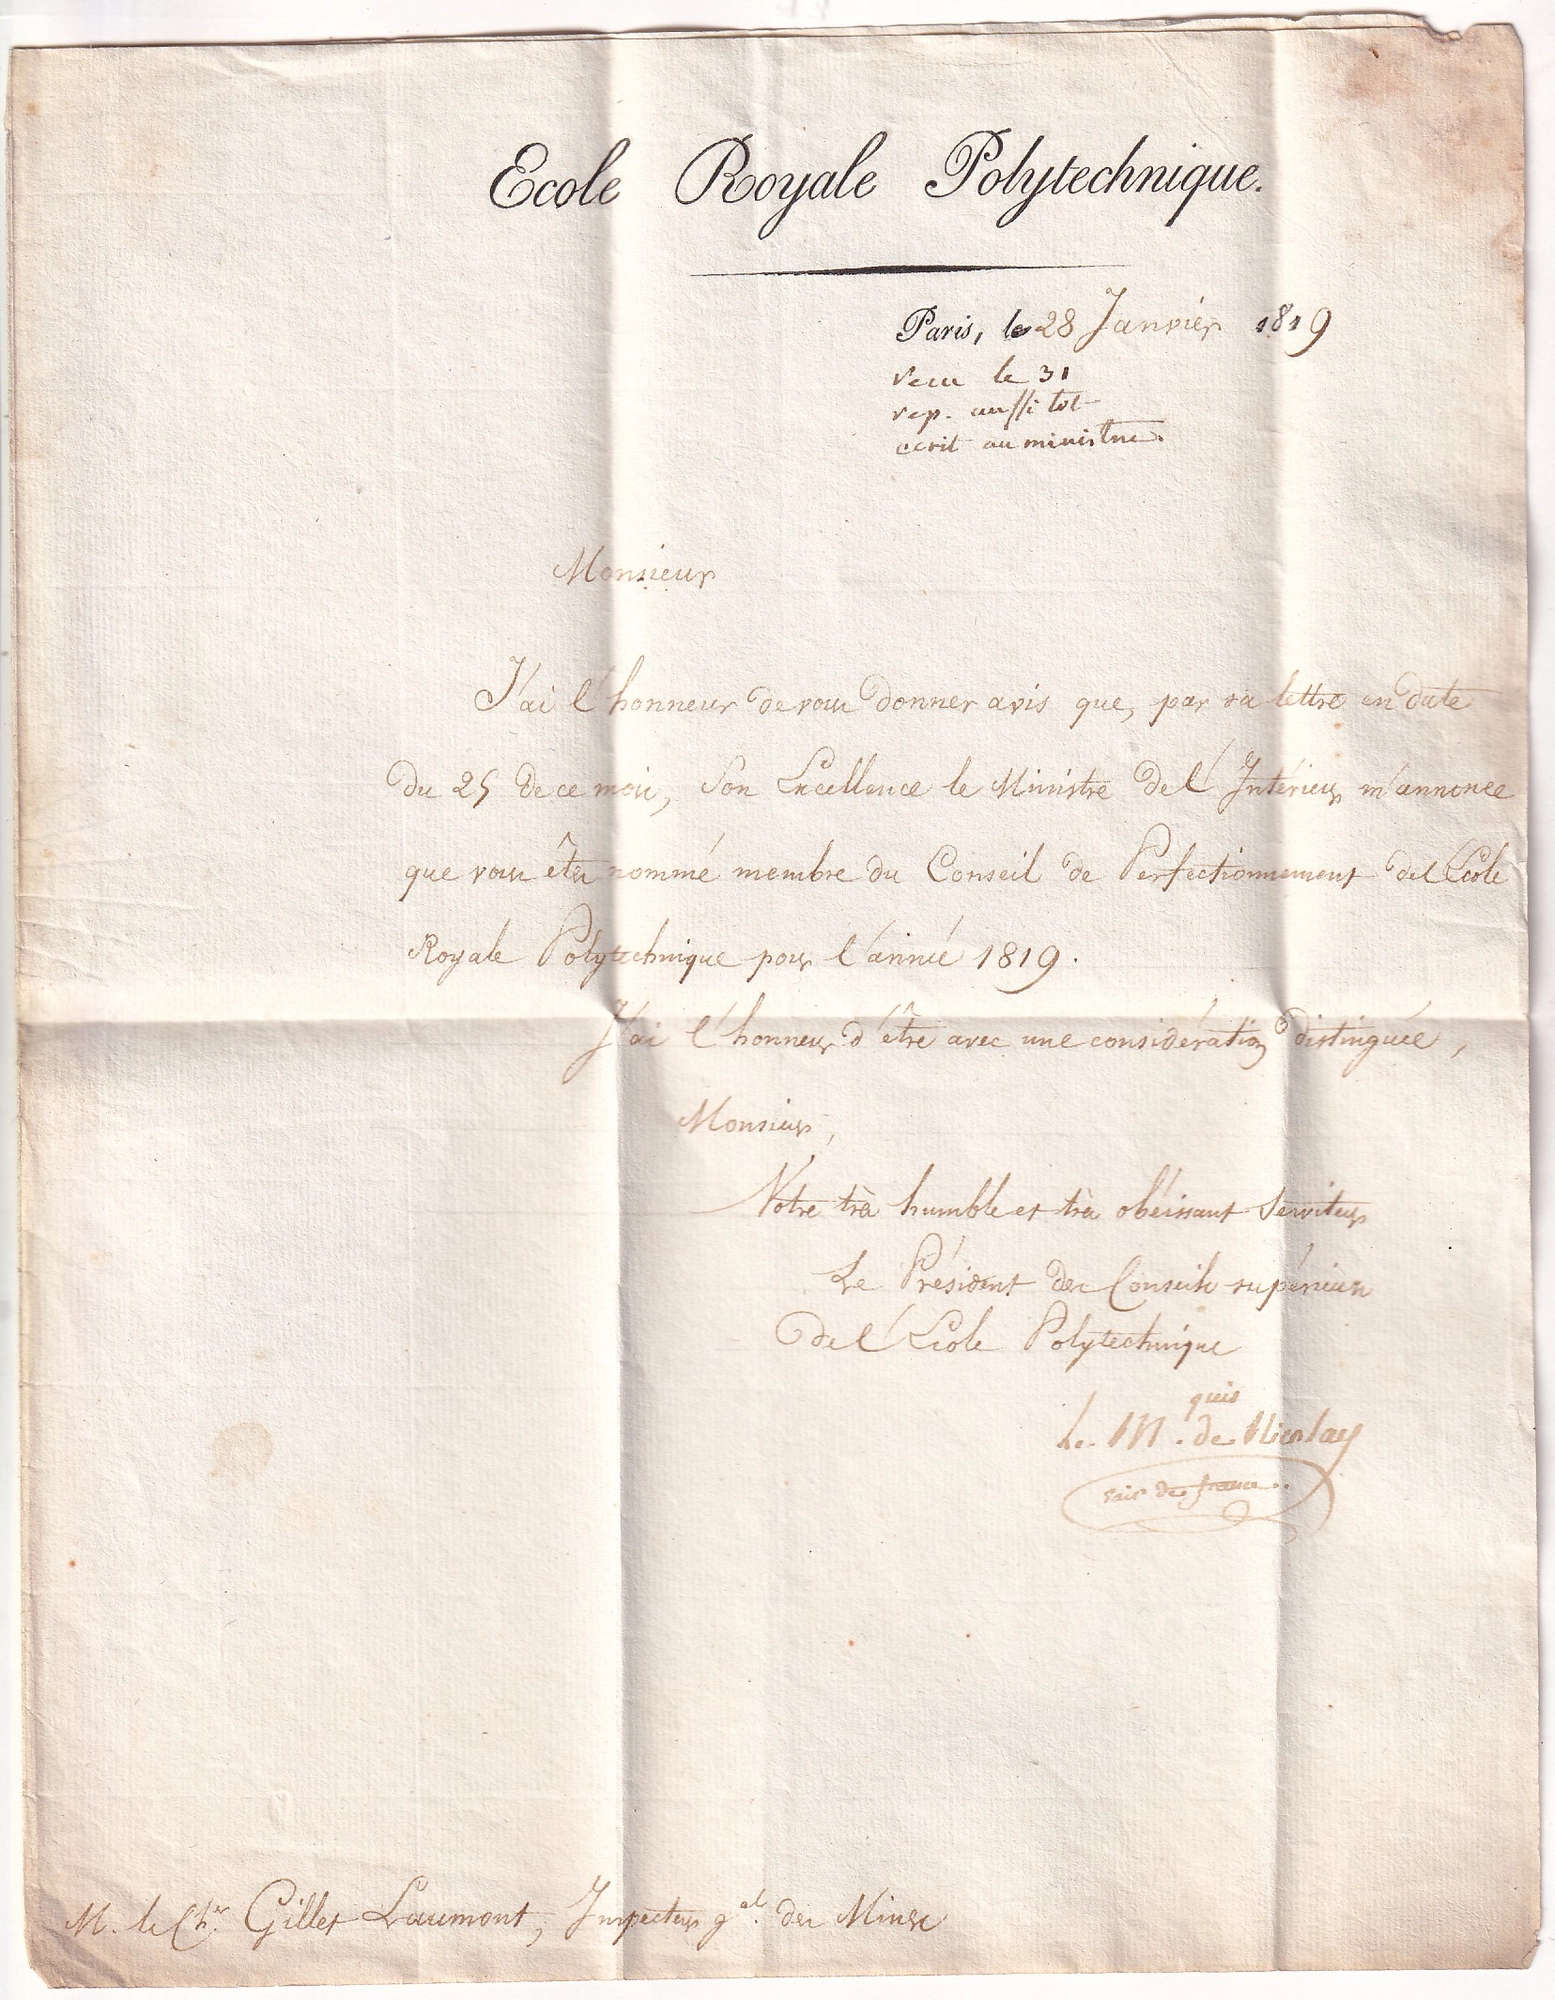 Ecole Royale Polytechnique.
Paris, le 28 Janvier 1819
recu le 31
rep. aussi tot
ecrit au ministre.
Monsieur
J'ai l'honneur de vous donner avis que, par sa lettre en date
du 25 de ce mois, Son Excellence le Ministre de l'Intérieur m'annonce
que vous êtes nommé membre du Conseil de Perfectionnement de l'Ecole
Royale Polytechnique pour l'année 1819.
J'ai l'honneur d'être avec une considération distinguée,
Monsieur,
Votre très humble et très obéissant Serviteur
Le Président des Conseils supérieurs
de l'Ecole Polytechnique
Le M.quis de Nicolay
pair de france.
M. le Ch.er Gillet Laumont, Inspecteur g.al des Mines